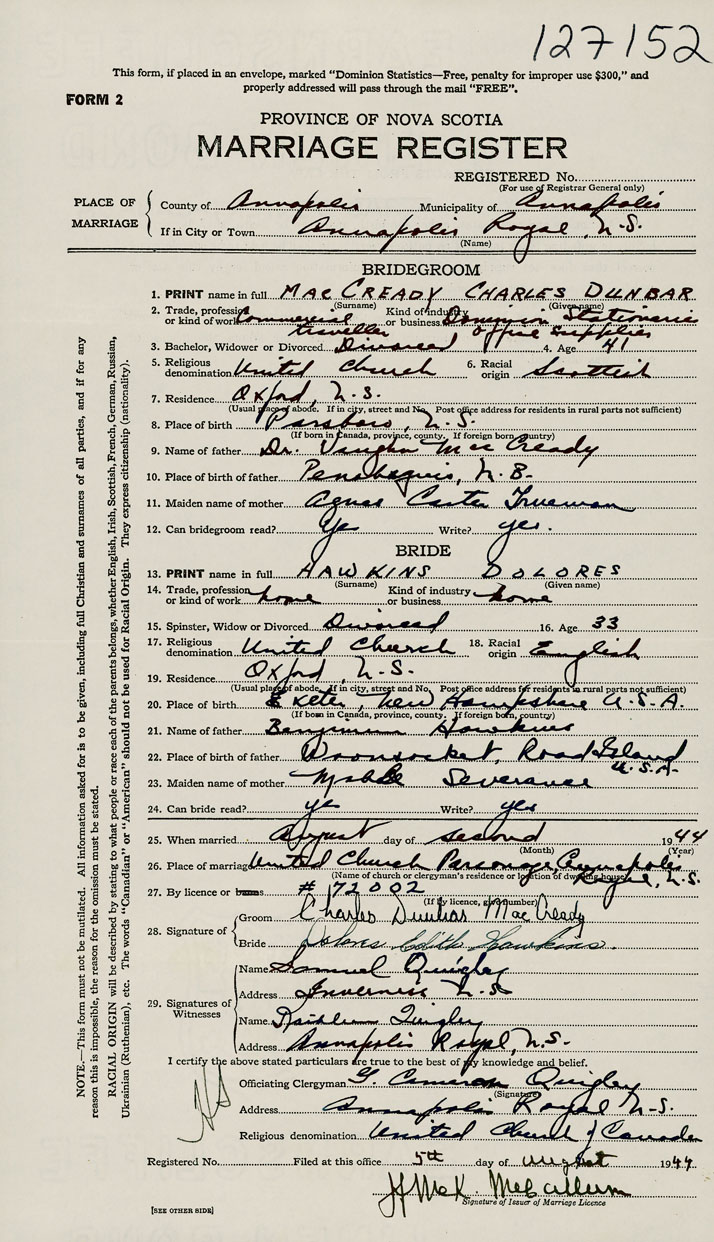 127152
This form, if placed in an envelope, marked “Dominion Statistics—Free, penalty for improper use $300,” and
properly addressed will pass through the mail “FREE”.
FORM 2
PROVINCE OF NOVA SCOTIA
MARRIAGE REGISTER
REGISTERED No.
(For use of Registrar General only)
PLACE OF MARRIAGE
County of Annapolis Municipality of Annapolis
If in City or Town Annapolis Royal, N.S.
(Name)
BRIDEGROOM
1. PRINT name in full MACCREADY CHARLES DUNBAR
(Surname) (Given name)
2. Trade, profession or kind of work Commercial traveller Kind of industry or business Dominion Stationers office supplies
3. Bachelor, Widower or Divorced Divorced 4. Age 41
5. Religious denomination United Church 6. Racial origin Scottish
7. Residence Oxford, N.S.
(Usual place of abode. If in city, street and No. Post office address for residents in rural parts not sufficient)
8. Place of birth Parsboro, N.S.
(If born in Canada, province, county. If foreign born, country)
9. Name of father Dr. Vaughn MacCready
10. Place of birth of father Penobsquis, N.B.
11. Maiden name of mother Agnes Carter Trueman
12. Can bridegroom read? Yes Write? yes.
BRIDE
13. PRINT name in full HAWKINS DOLORES
(Surname) (Given name)
14. Trade, profession or kind of work home Kind of industry or business home
15. Spinster, Widow or Divorced Divorced 16. Age 33
17. Religious denomination United Church 18. Racial origin English
19. Residence Oxford, N.S.
(Usual place of abode. If in city, street and No. Post office address for residents in rural parts not sufficient)
20. Place of birth Exeter, New Hampshire U.S.A.
(If born in Canada, province, county. If foreign born, country)
21. Name of father Benjamin Hawkins
22. Place of birth of father Woonsocket, Road Island U.S.A.
23. Maiden name of mother Mable Severance
24. Can bride read? yes Write? yes
25. When married August day of second 1944
(Month) (Year)
26. Place of marriage United Church Parsonage, Annapolis Royal, N.S.
(Name of church or clergyman's residence or location of dwelling house)
27. By licence or banns # 72002
(If by licence, give number)
28. Signature of
Groom Charles Dunbar MacCready
Bride Dolores Edith Hawkins.
29. Signatures of Witnesses
Name Samuel Quigley
Address Inverness N.S.
Name Kathleen Quigley
Address Annapolis Royal, N.S.
I certify the above stated particulars are true to the best of my knowledge and belief.
NS
Officiating Clergyman G. Cameron Quigley
(Signature)
Address Annapolis Royal N.S.
Religious denomination United Church of Canada
Registered No. Filed at this office 5th day of August 1944
McK. McCallum
Signature of Issuer of Marriage Licence
[SEE OTHER SIDE]
NOTE.—This form must not be mutilated. All information asked for is to be given, including full Christian and surnames of all parties, and if for any
reason this is impossible, the reason for the omission must be stated.
RACIAL ORIGIN will be described by stating to what people or race each of the parents belongs, whether English, Irish, Scottish, French, German, Russian,
Ukrainian (Ruthenian), etc. The words “Canadian” or “American” should not be used for Racial Origin. They express citizenship (nationality).